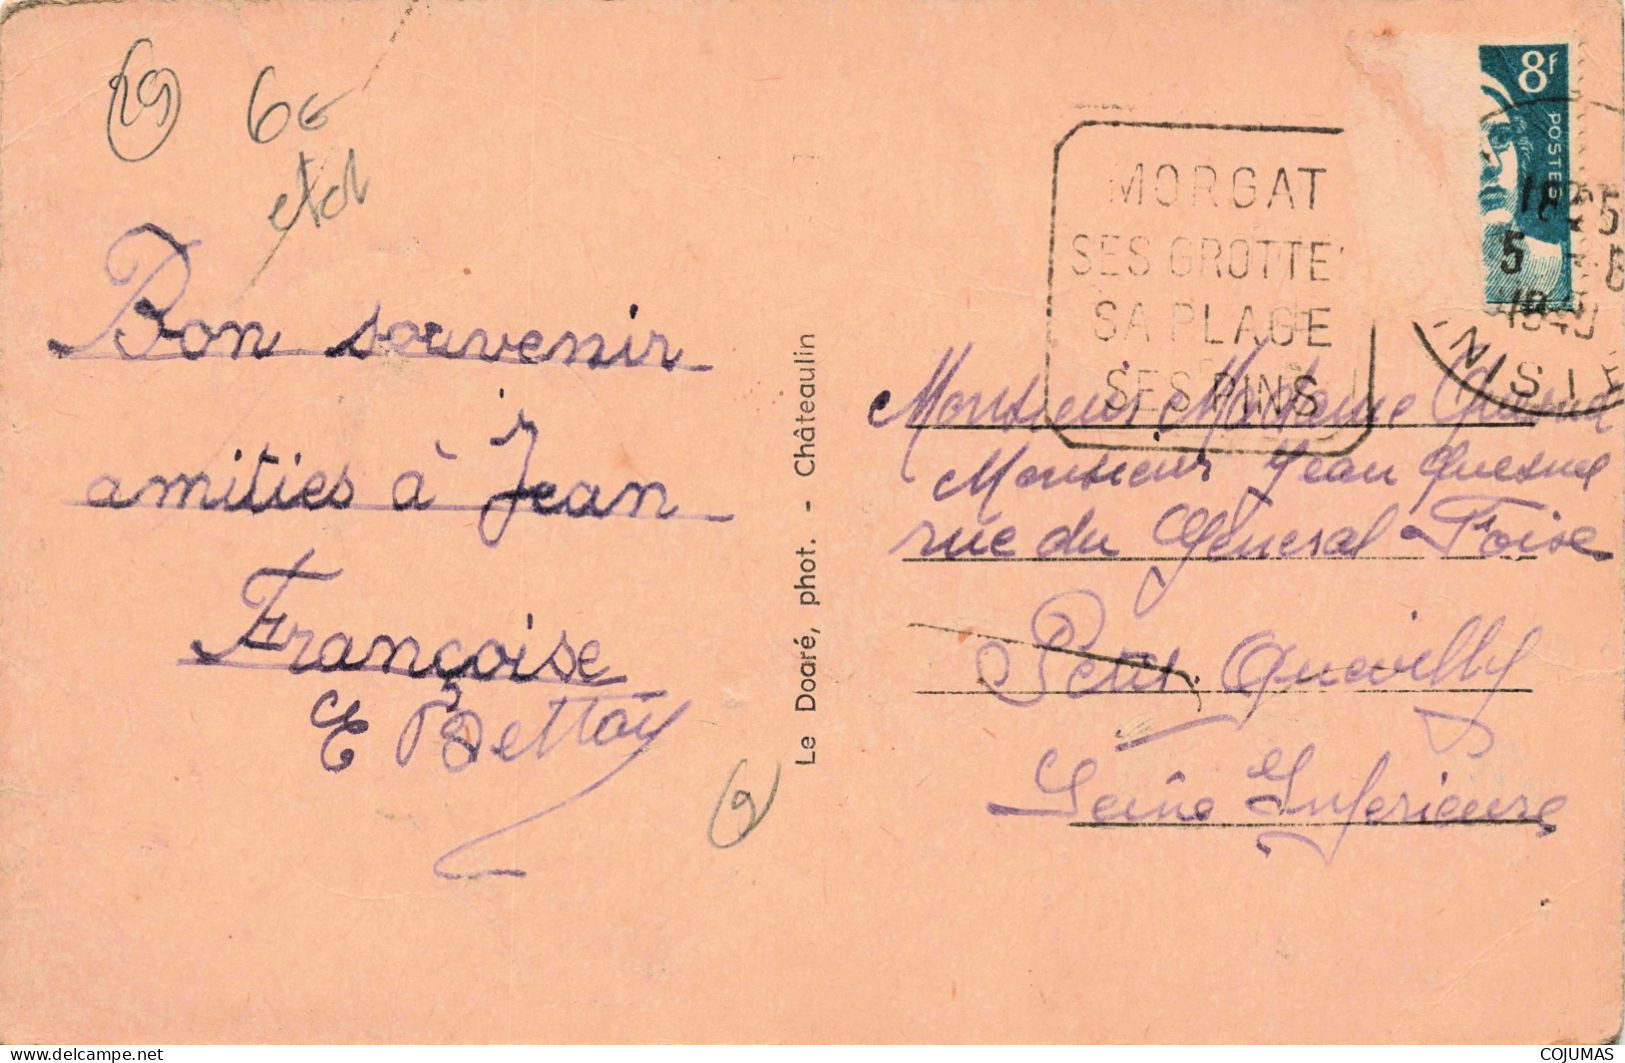 29
6€
etd
Bon souvenir
amitiés à Jean
Françoise
E
Le Doaré, phot. - Châteaulin
8f
POSTES
MORGAT
SES GROTTE
SA PLAGE
SES PINS
18
5
NIST
Monsieur Madame Quesne
Monsieur Jean Quesne
rue du Général
Petit Quevilly
Seine Inferieure
COJUMAS